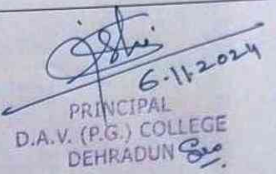 6.11.2024
PRINCIPAL
D.A.V. (P.G.) COLLEGE
DEHRADUN